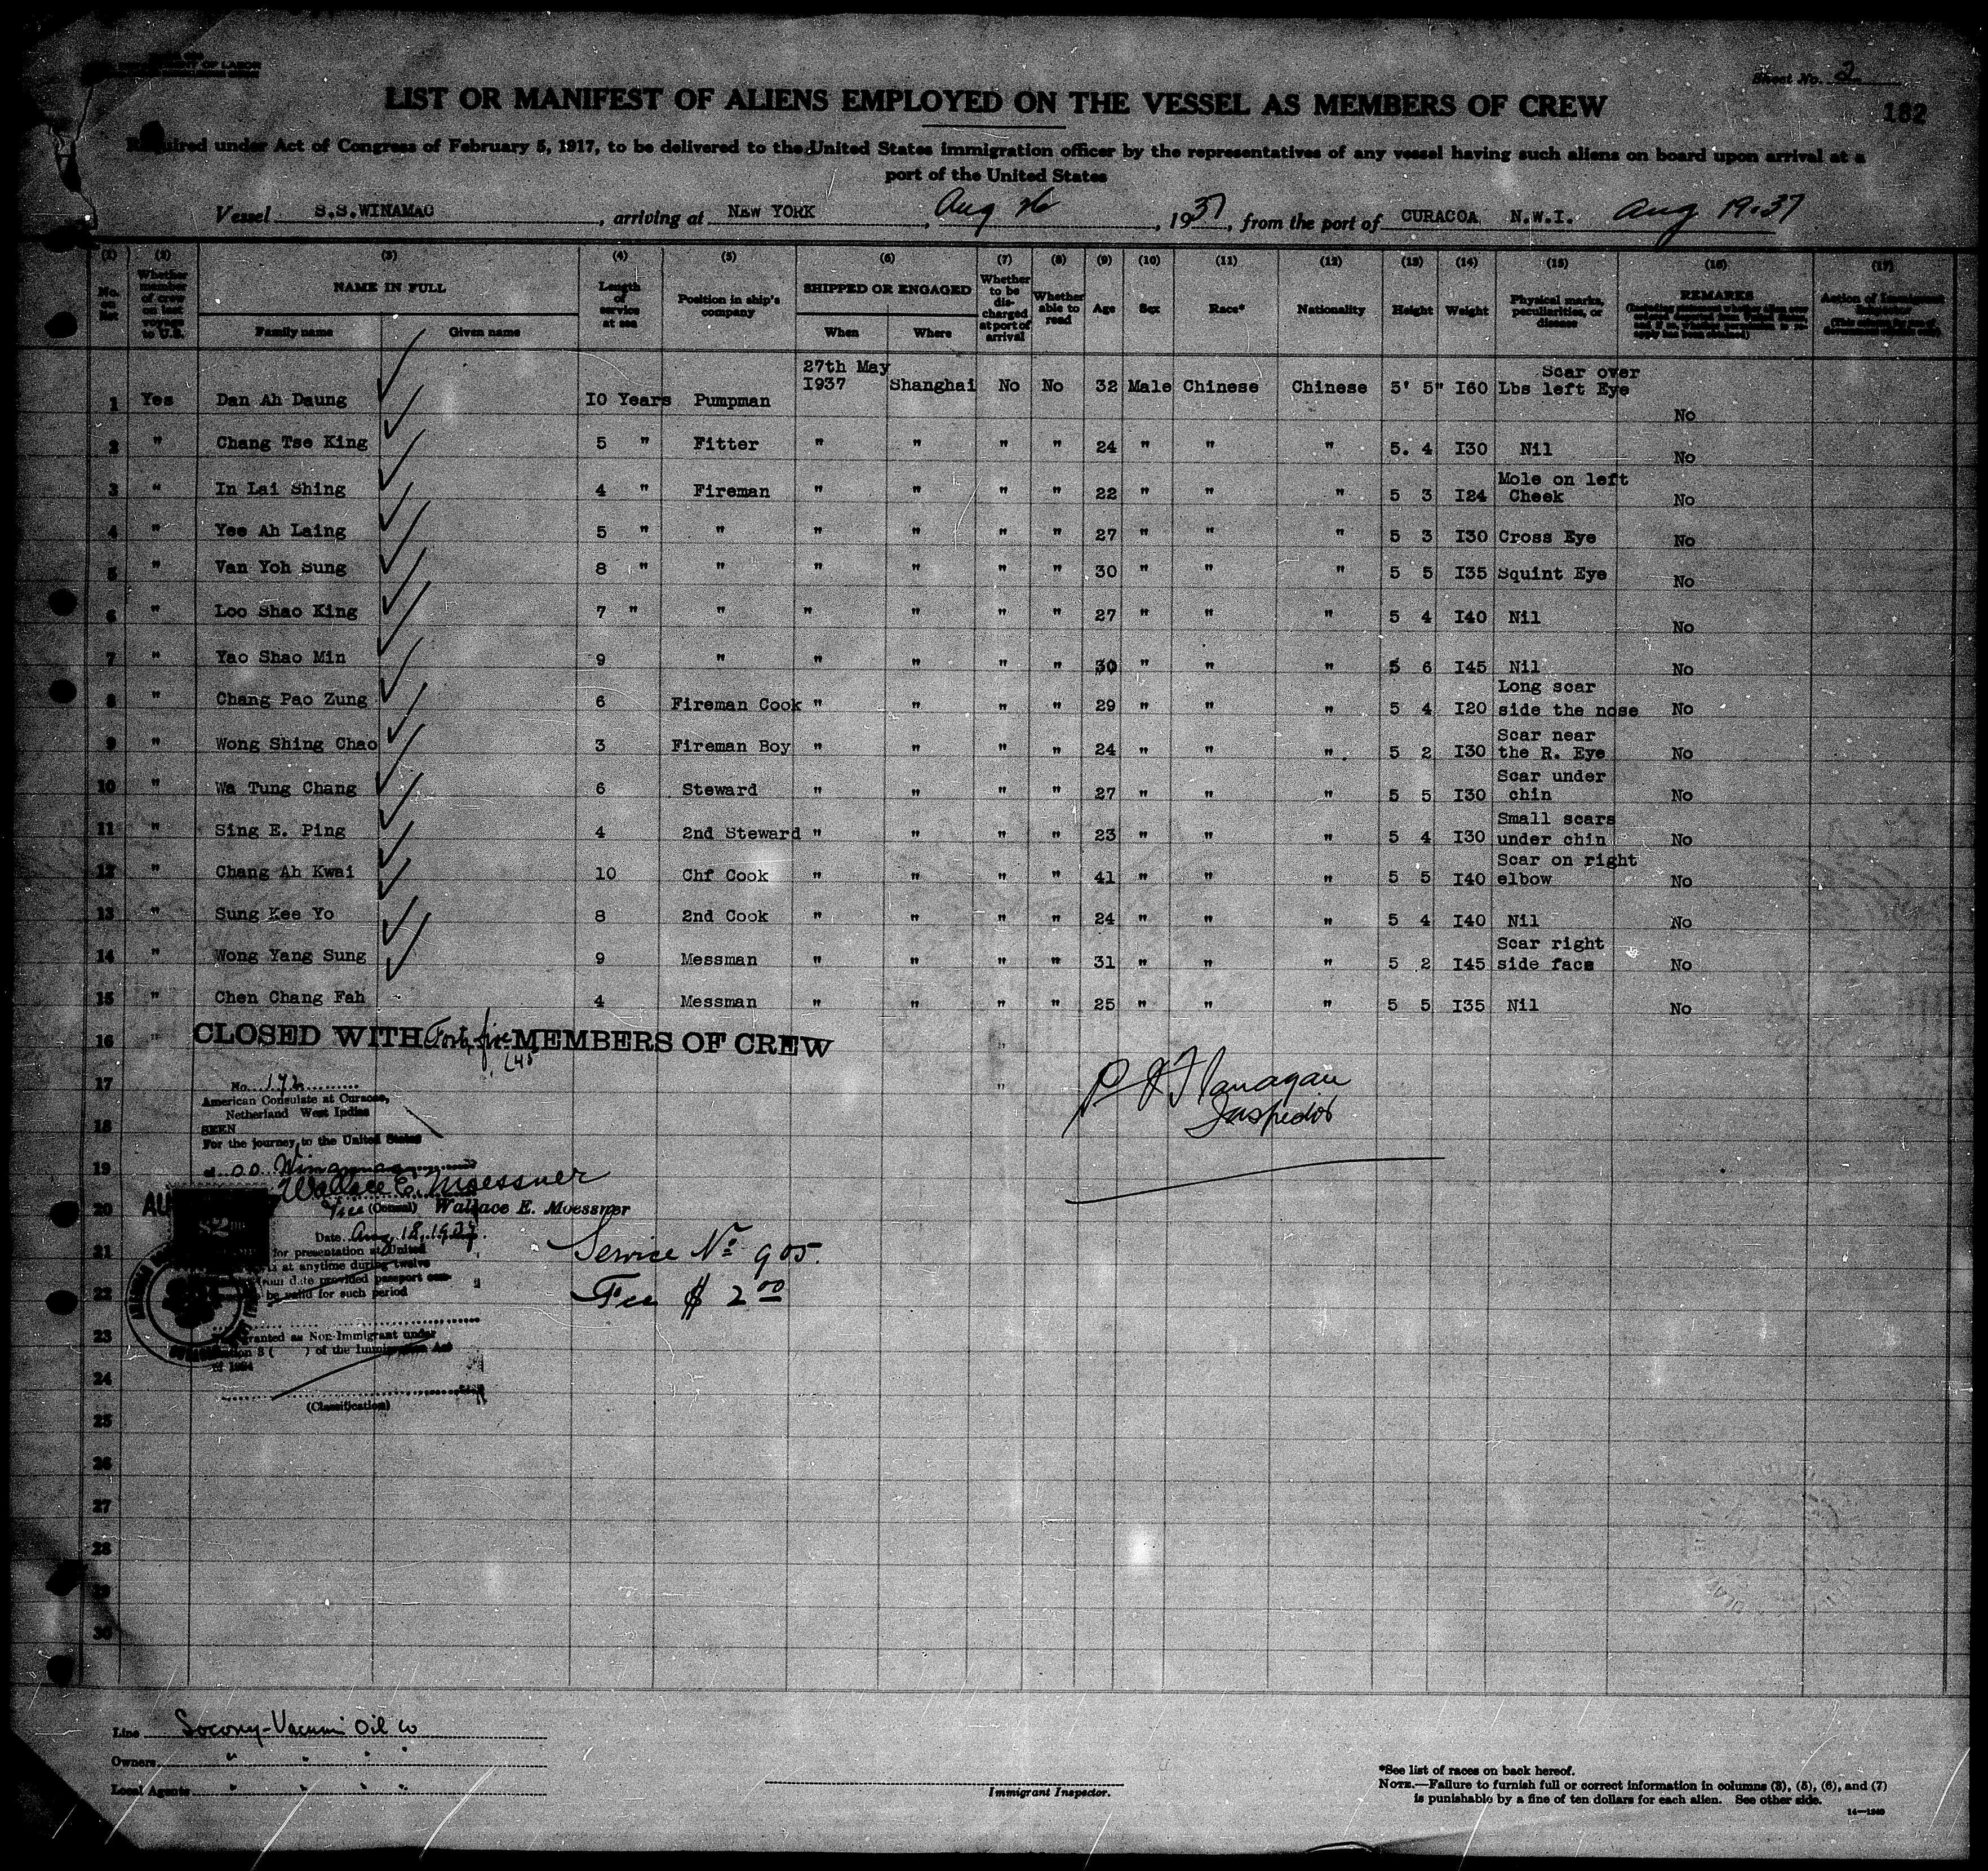 Sheet No. 2
LIST OR MANIFEST OF ALIENS EMPLOYED ON THE VESSEL AS MEMBERS OF CREW
182
Required under Act of Congress of February 5, 1917, to be delivered to the United States immigration officer by the representatives of any vessel having such aliens on board upon arrival at a
port of the United States
Vessel S.S.WINAMAC, arriving at NEW YORK, Aug 26, 1937, from the port of CURACOA N.W.I. Aug 19.37
(1) (2) (3) (4) (5) (6) (7) (8) (9) (10) (11) (12) (13) (14) (15) (16) (17)
No. on list
Whether member of crew on last voyage to U.S.
NAME IN FULL
Family name Given name
Length of service at sea
Position in ship's company
SHIPPED OR ENGAGED
When Where
Whether to be discharged at port of arrival
Whether able to read
Age Sex Race* Nationality Height Weight
Physical marks, peculiarities, or disease
REMARKS
Action of Immigrant Inspector
1 Yes Dan Ah Daung 10 Years Pumpman 27th May I937 Shanghai No No 32 Male Chinese Chinese 5' 5" I60 Lbs Scar over left Eye No
2 " Chang Tse King 5 " Fitter " " " " 24 " " " 5. 4 I30 Nil No
3 " In Lai Shing 4 " Fireman " " " " 22 " " " 5 3 I24 Mole on left Cheek No
4 " Yee Ah Laing 5 " " " " " " 27 " " " 5 3 I30 Cross Eye No
5 " Van Yoh Sung 8 " " " " " " 30 " " " 5 5 I35 Squint Eye No
6 " Loo Shao King 7 " " " " " " 27 " " " 5 4 I40 Nil No
7 " Yao Shao Min 9 " " " " " 30 " " " 5 6 I45 Nil No
8 " Chang Pao Zung 6 Fireman Cook " " " " 29 " " " 5 4 I20 Long scar side the nose No
9 " Wong Shing Chao 3 Fireman Boy " " " " 24 " " " 5 2 I30 Scar near the R. Eye No
10 " Wa Tung Chang 6 Steward " " " " 27 " " " 5 5 I30 Scar under chin No
11 " Sing E. Ping 4 2nd Steward " " " " 23 " " " 5 4 I30 Small scars under chin No
12 " Chang Ah Kwai 10 Chf Cook " " " " 41 " " " 5 5 I40 Scar on right elbow No
13 " Sung Kee Yo 8 2nd Cook " " " " 24 " " " 5 4 I40 Nil No
14 " Wong Yang Sung 9 Messman " " " " 31 " " " 5 2 I45 Scar right side face No
15 " Chen Chang Fah 4 Messman " " " " 25 " " " 5 5 I35 Nil No
16 " CLOSED WITH Forty five MEMBERS OF CREW "
(45
17 No. 172 "
American Consulate at Curacao,
Netherland West Indies
P J Flanagan
Inspector
18 SEEN
For the journey to the United States
19 Winamac
Wallace E. Moessner
20 (Consul) Wallace E. Moessner
$2
Date Aug. 18, 1937.
21 for presentation at United
at anytime during twelve
from date provided passport
22 be valid for such period
Service No 905.
Fee $ 2 00
23 granted as Non-Immigrant under
section 3 ( ) of the Immigration Act
of 1924
24
(Classification)
25
26
27
28
29
30
Line Socony-Vacuum Oil Co
Owners " " " "
Local Agents " " " "
Immigrant Inspector.
*See list of races on back hereof.
NOTE.—Failure to furnish full or correct information in columns (3), (5), (6), and (7)
is punishable by a fine of ten dollars for each alien. See other side.